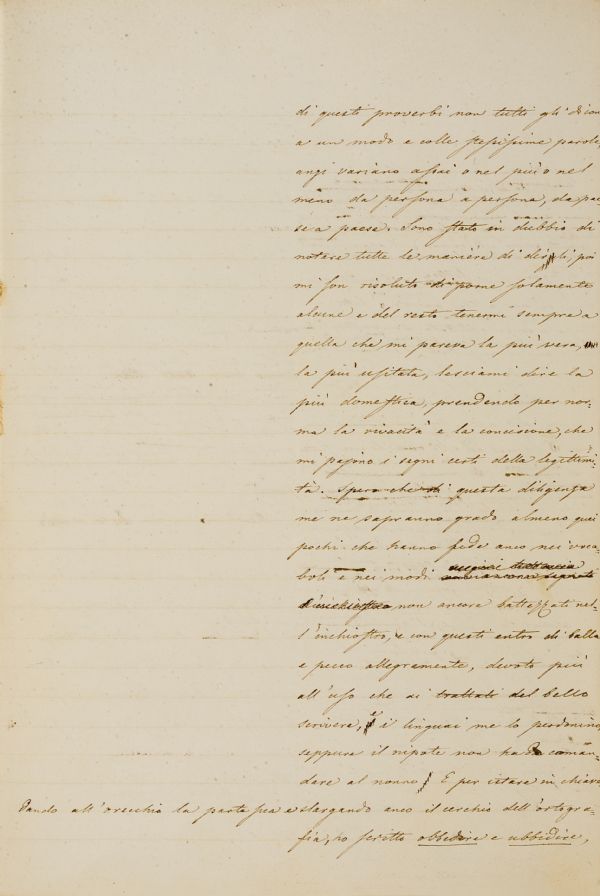 di questi proverbi non tutti gli dicon
a un modo e colle stessissime parole,
anzi variano assai o nel più o nel
meno da persona a persona, da pae
se a paese. Sono stato in dubbio di
notare tutte le maniere di dirli, poi
mi son risoluto di porne solamente
alcune e del resto tenermi sempre a
quella che mi pareva la più vera,
la più usitata, lasciami dire la
più domestica, prendendo per nor-
ma la vivacità e la concisione, che
mi pajono i segni certi della legittimi-
tà. Spero che di questa diligenza
me ne sapranno grado almeno quei
pochi che hanno fede anco nei voca-
boli e nei modi
non ancora battezzati nel-
l'inchiostro, e con questi entro di balla
e pecco allegramente, devoto più
all'uso che ai trattati del bello
scrivere, e i linguai me lo perdonino,
seppure il nipote non ha da coman-
dare al nonno. E per istare in chiave
dando all'orecchio la parte sua e slargando anco il cerchio dell'ortogra-
fia, ho scritto obbedire e ubbidire,